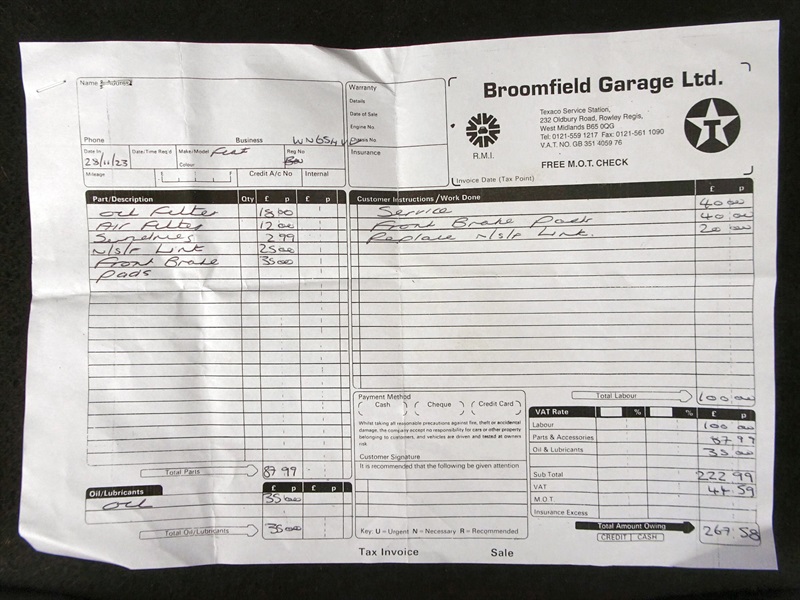 Broomfield Garage Ltd.
Texaco Service Station,
232 Oldbury Road, Rowley Regis,
West Midlands B65 0QG
Tel: 0121-559 1217 Fax: 0121-561 1090
V.A.T. NO. GB 351 4059 76
R.M.I.
T
FREE M.O.T. CHECK
Invoice Date (Tax Point)
Name & Address
Phone Business
Warranty
Details
Date of Sale
Engine No
Chassis No
Insurance
WN65HVP
Date In Date/Time Req'd Make/Model Reg No
28/11/23 Colour
Mileage Credit A/c No Internal
Part/Description Qty £ p £ p
Oil Filter 18 00
Air Filter 12 00
Sundries 2 99
N/S/F Link 25 00
Front Brake 35 00
Pads
Total Parts 87 99
Oil/Lubricants £ p £ p
Oil 35 00
Total Oil/Lubricants 35 00
Customer Instructions / Work Done £ p
Service 40 00
Front Brake Pads 40 00
Replace N/S/F Link. 20 00
Total Labour 100 00
Payment Method
Cash Cheque Credit Card
Whilst taking all reasonable precautions against fire, theft or accidental
damage, the company accept no responsibility for cars or other property
belonging to customers, and vehicles are driven and tested at owners
risk.
Customer Signature
It is recommended that the following be given attention
Key: U = Urgent N = Necessary R = Recommended
VAT Rate % % £ p
Labour 100 00
Parts & Accessories 87 99
Oil & Lubricants 35 00
Sub Total 222.99
VAT 44.59
M.O.T.
Insurance Excess
Total Amount Owing 267.58
CREDIT CASH
Tax Invoice Sale